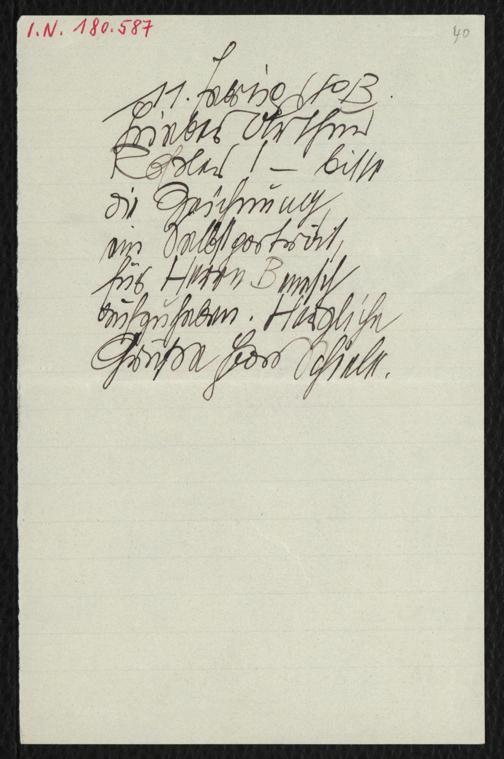 I.N. 180.587
40
11.
Lieber Arthur
Roessler! — bitte
die Zeichnung,
ein Selbstportrait,
für Herrn Benesch
aufzuheben. Herzliche
Grüße Egon Schiele.